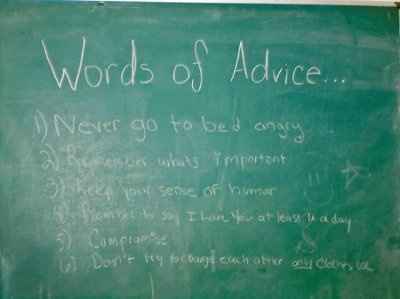 Words of Advice...
1) Never go to bed angry...
2) Remember whats important
3) Keep your sense of humor
4) to say I love You at least 1x a day
5) Compromise
6) Don't try to change each other only